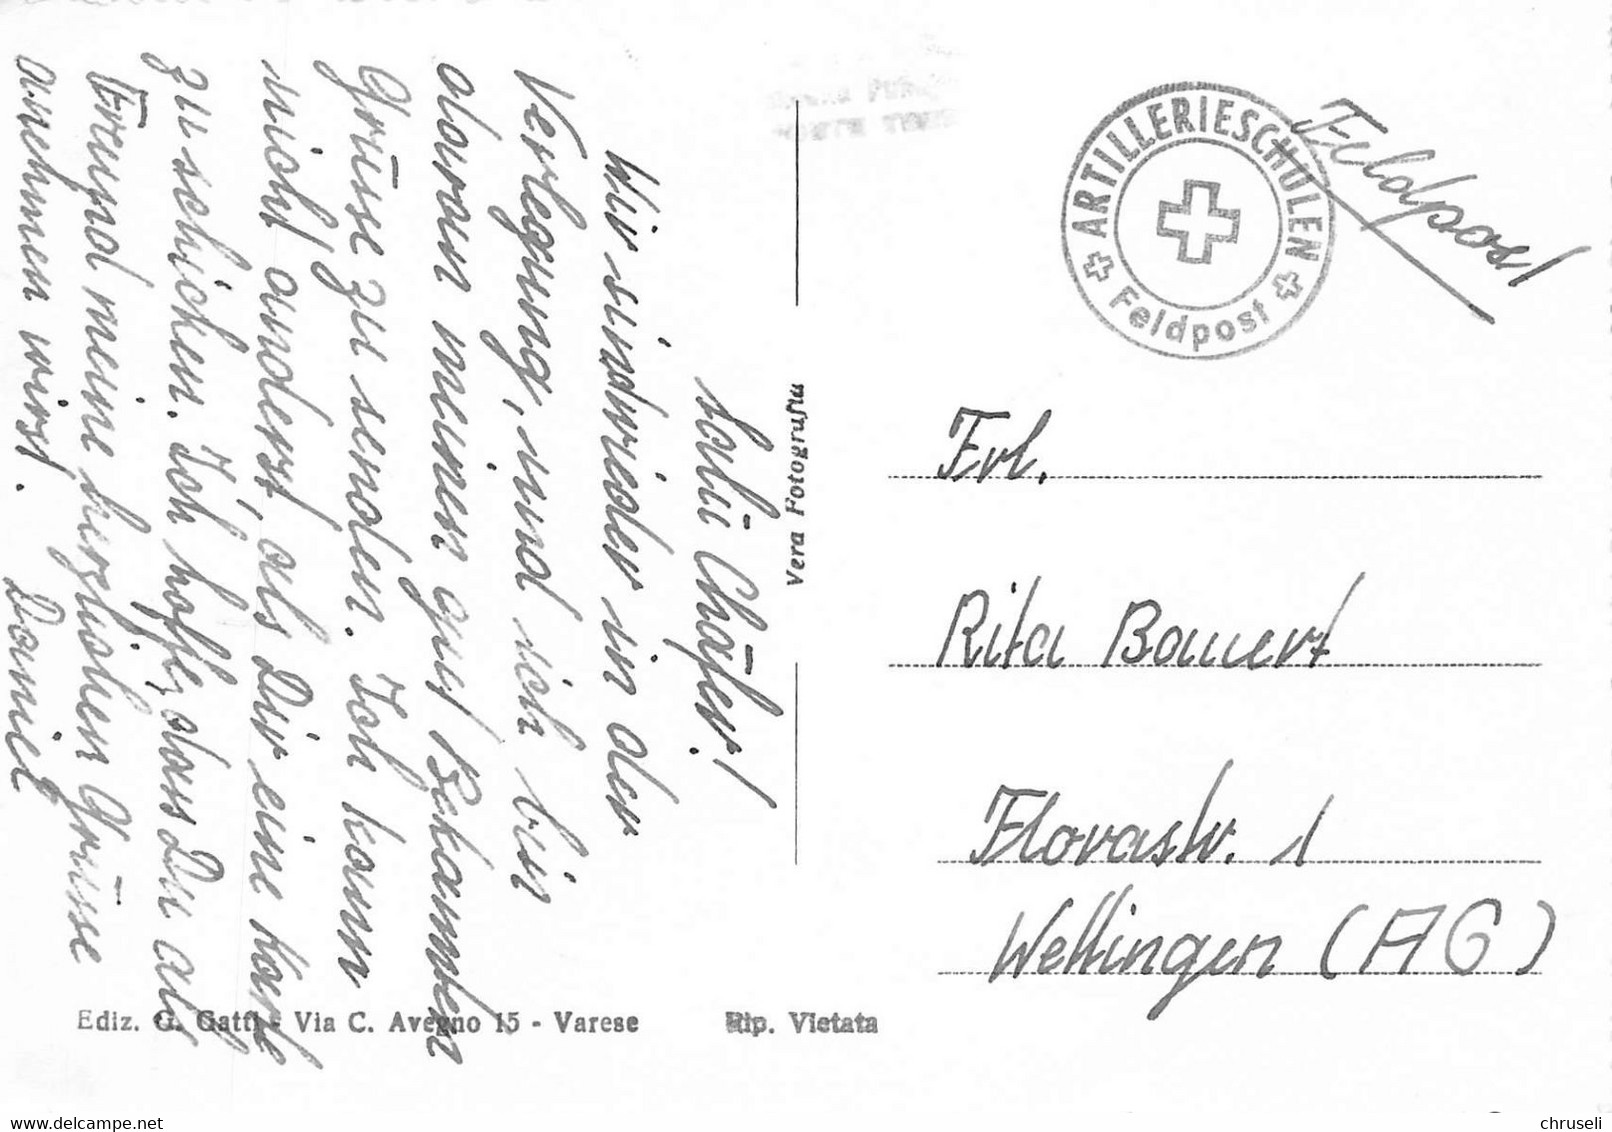 Salü Chäfer!
Wir sind wieder in der
Verlegung, und ich bin
daran meinen gut Bekannten
Grüsse zu senden. Ich kann
nicht anderst, als Dir eine Karte
zu schicken. Ich hoffe, dass Du als
Freund meine herzlichen Grüsse
annehmen wirst.
Daniel
Vera Fotografia
Ediz. G. Gatti - Via C. Avegno 15 - Varese
Rip. Vietata
ARTILLERIESCHULEN
Feldpost
Feldpost
Frl.
Rita Bauert
Florastr. 1
Wettingen (AG)
chruseli